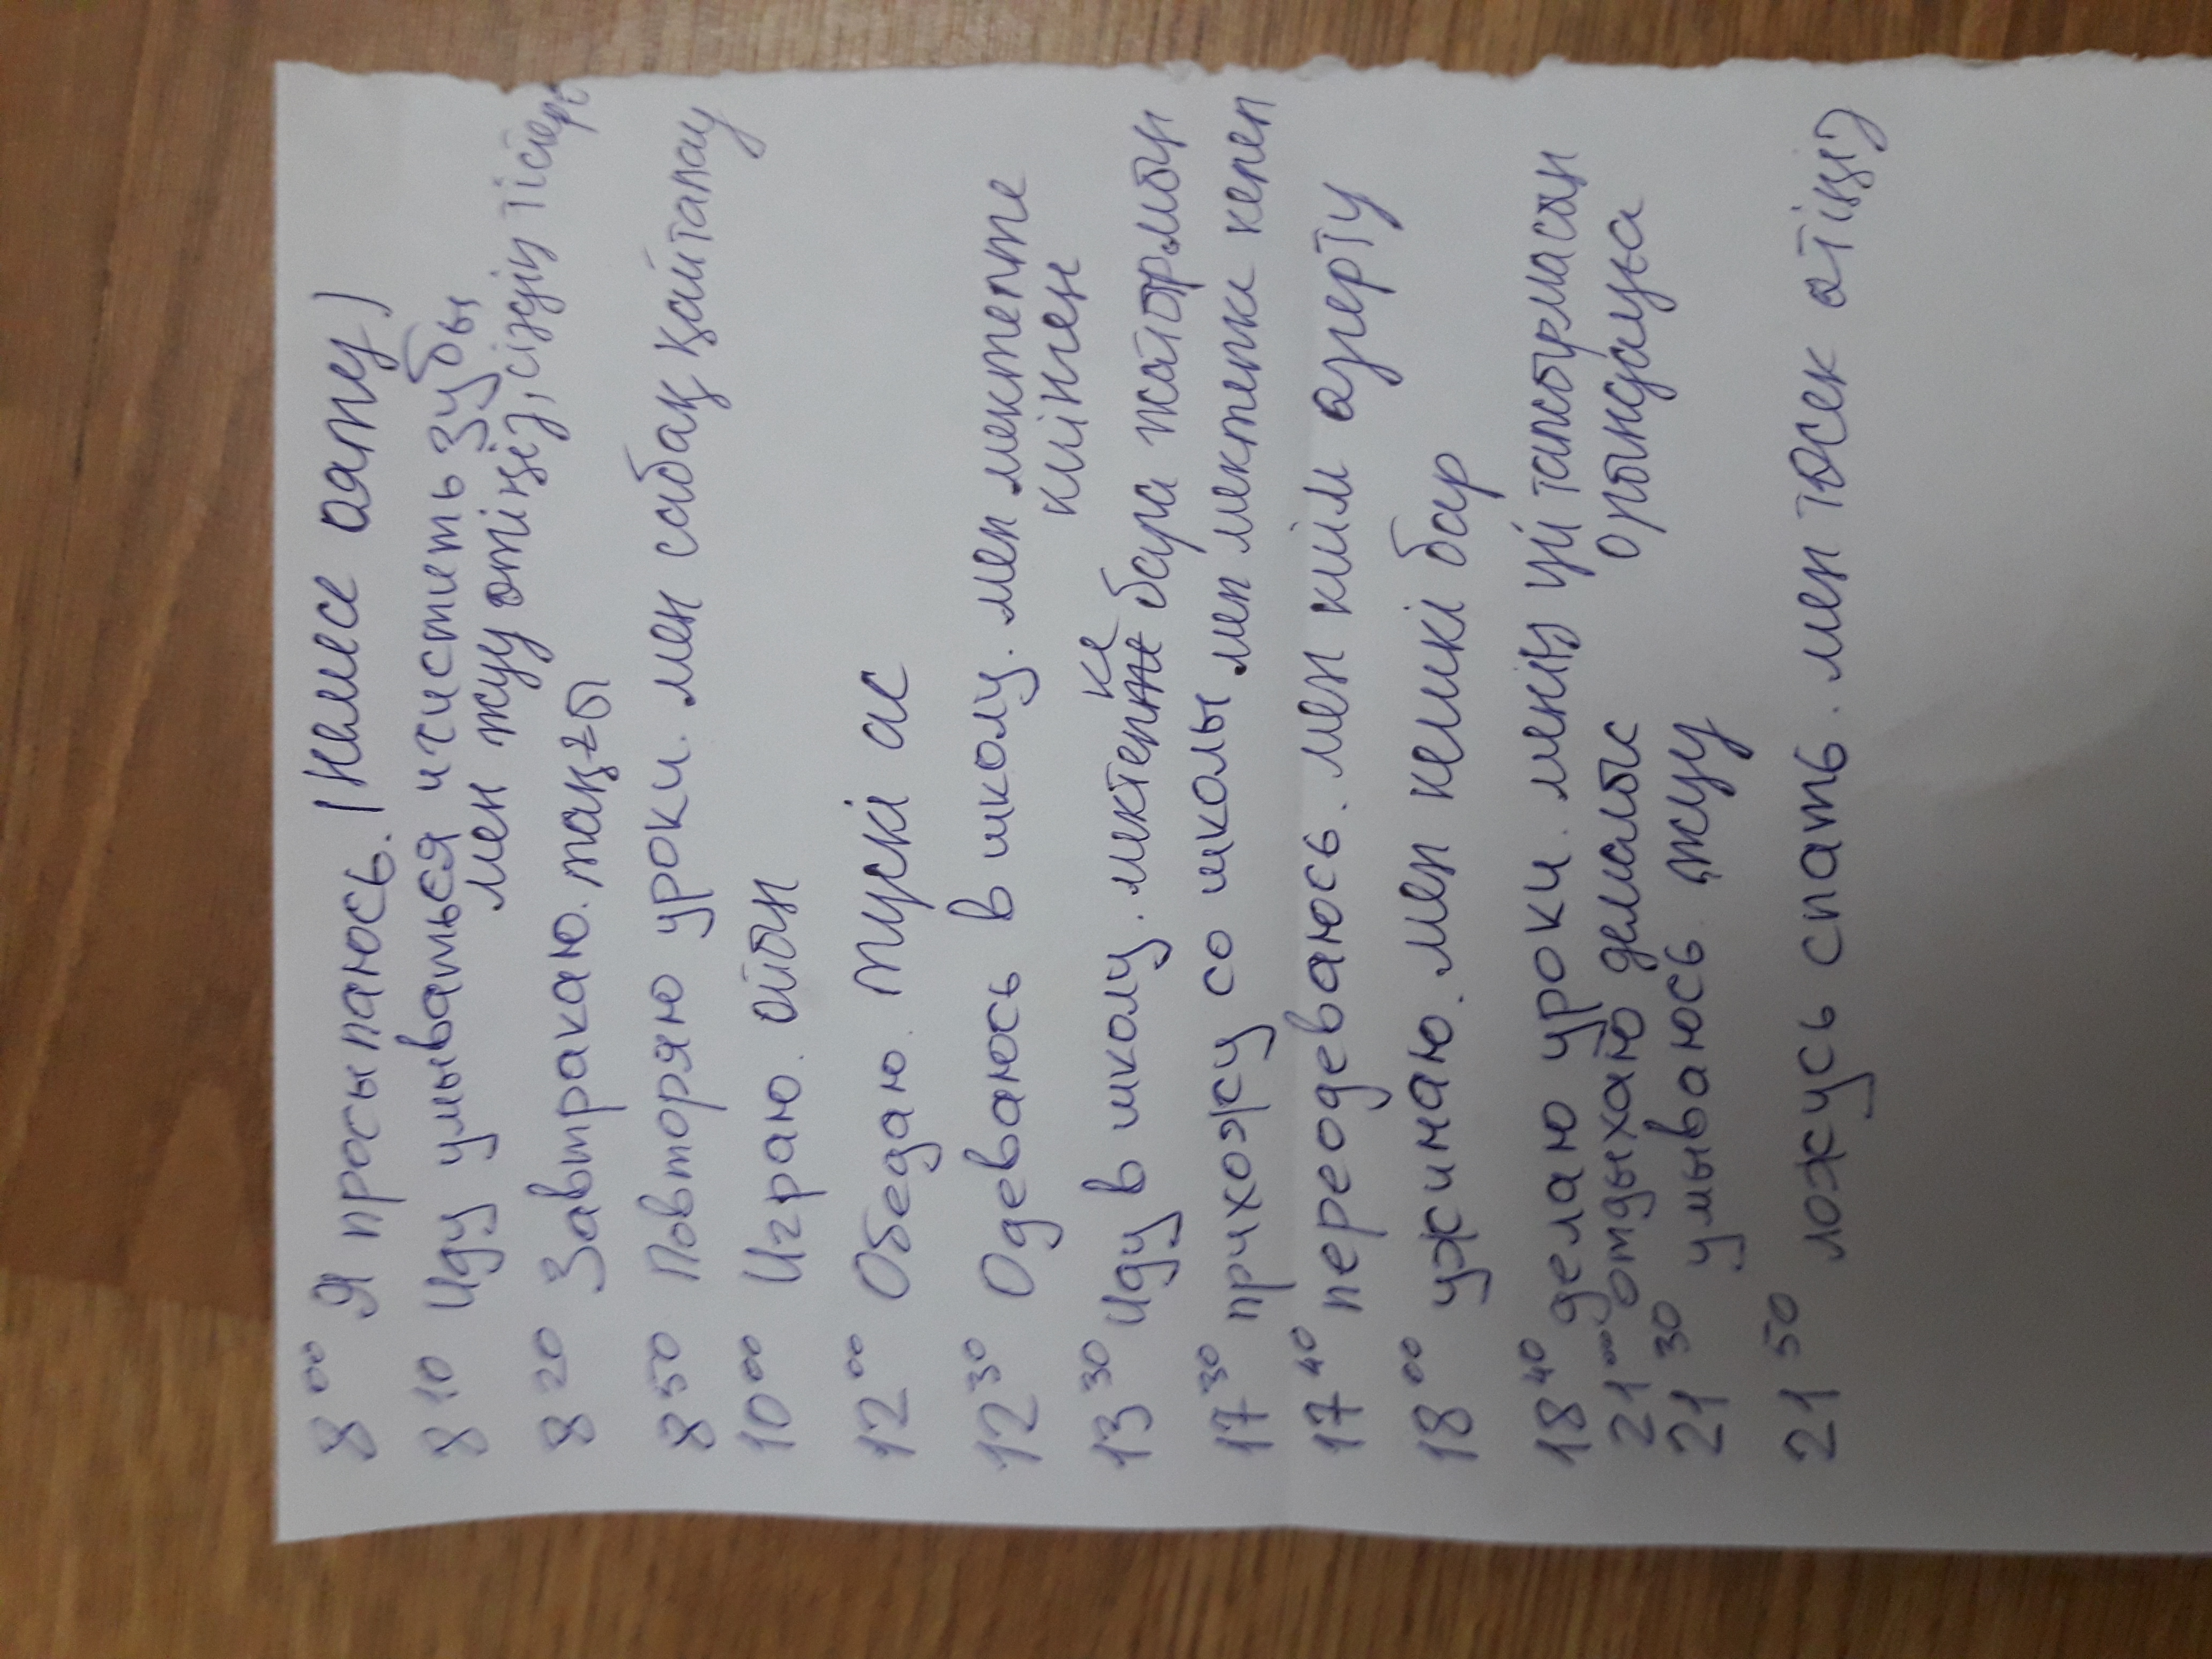 8 00 Я просыпаюсь. (немесе ояту)
8 10 Иду умываться и чистить зубы
мен жуу өтіңіз, сіздің тістері
8 20 Завтракаю. таңғы
8 50 Повторяю уроки. мен сабақ қайталау
10 00 Играю. ойын
12 00 Обедаю. түскі ас
12 30 Одеваюсь в школу. мен мектепте
киінген
ке
13 30 Иду в школу. мектепте бара жатырмын
17 30 прихожу со школы мен мектепке келеп
17 40 переодеваюсь. мен киім өзгерту
18 00 ужинаю. мен кешкі бар
18 40 делаю уроки. менің үй тапсырмасын
21 00 отдыхаю демалыс орындауға
21 30 умываюсь жуу
21 50 ложусь спать. мен төсек өтіңіз